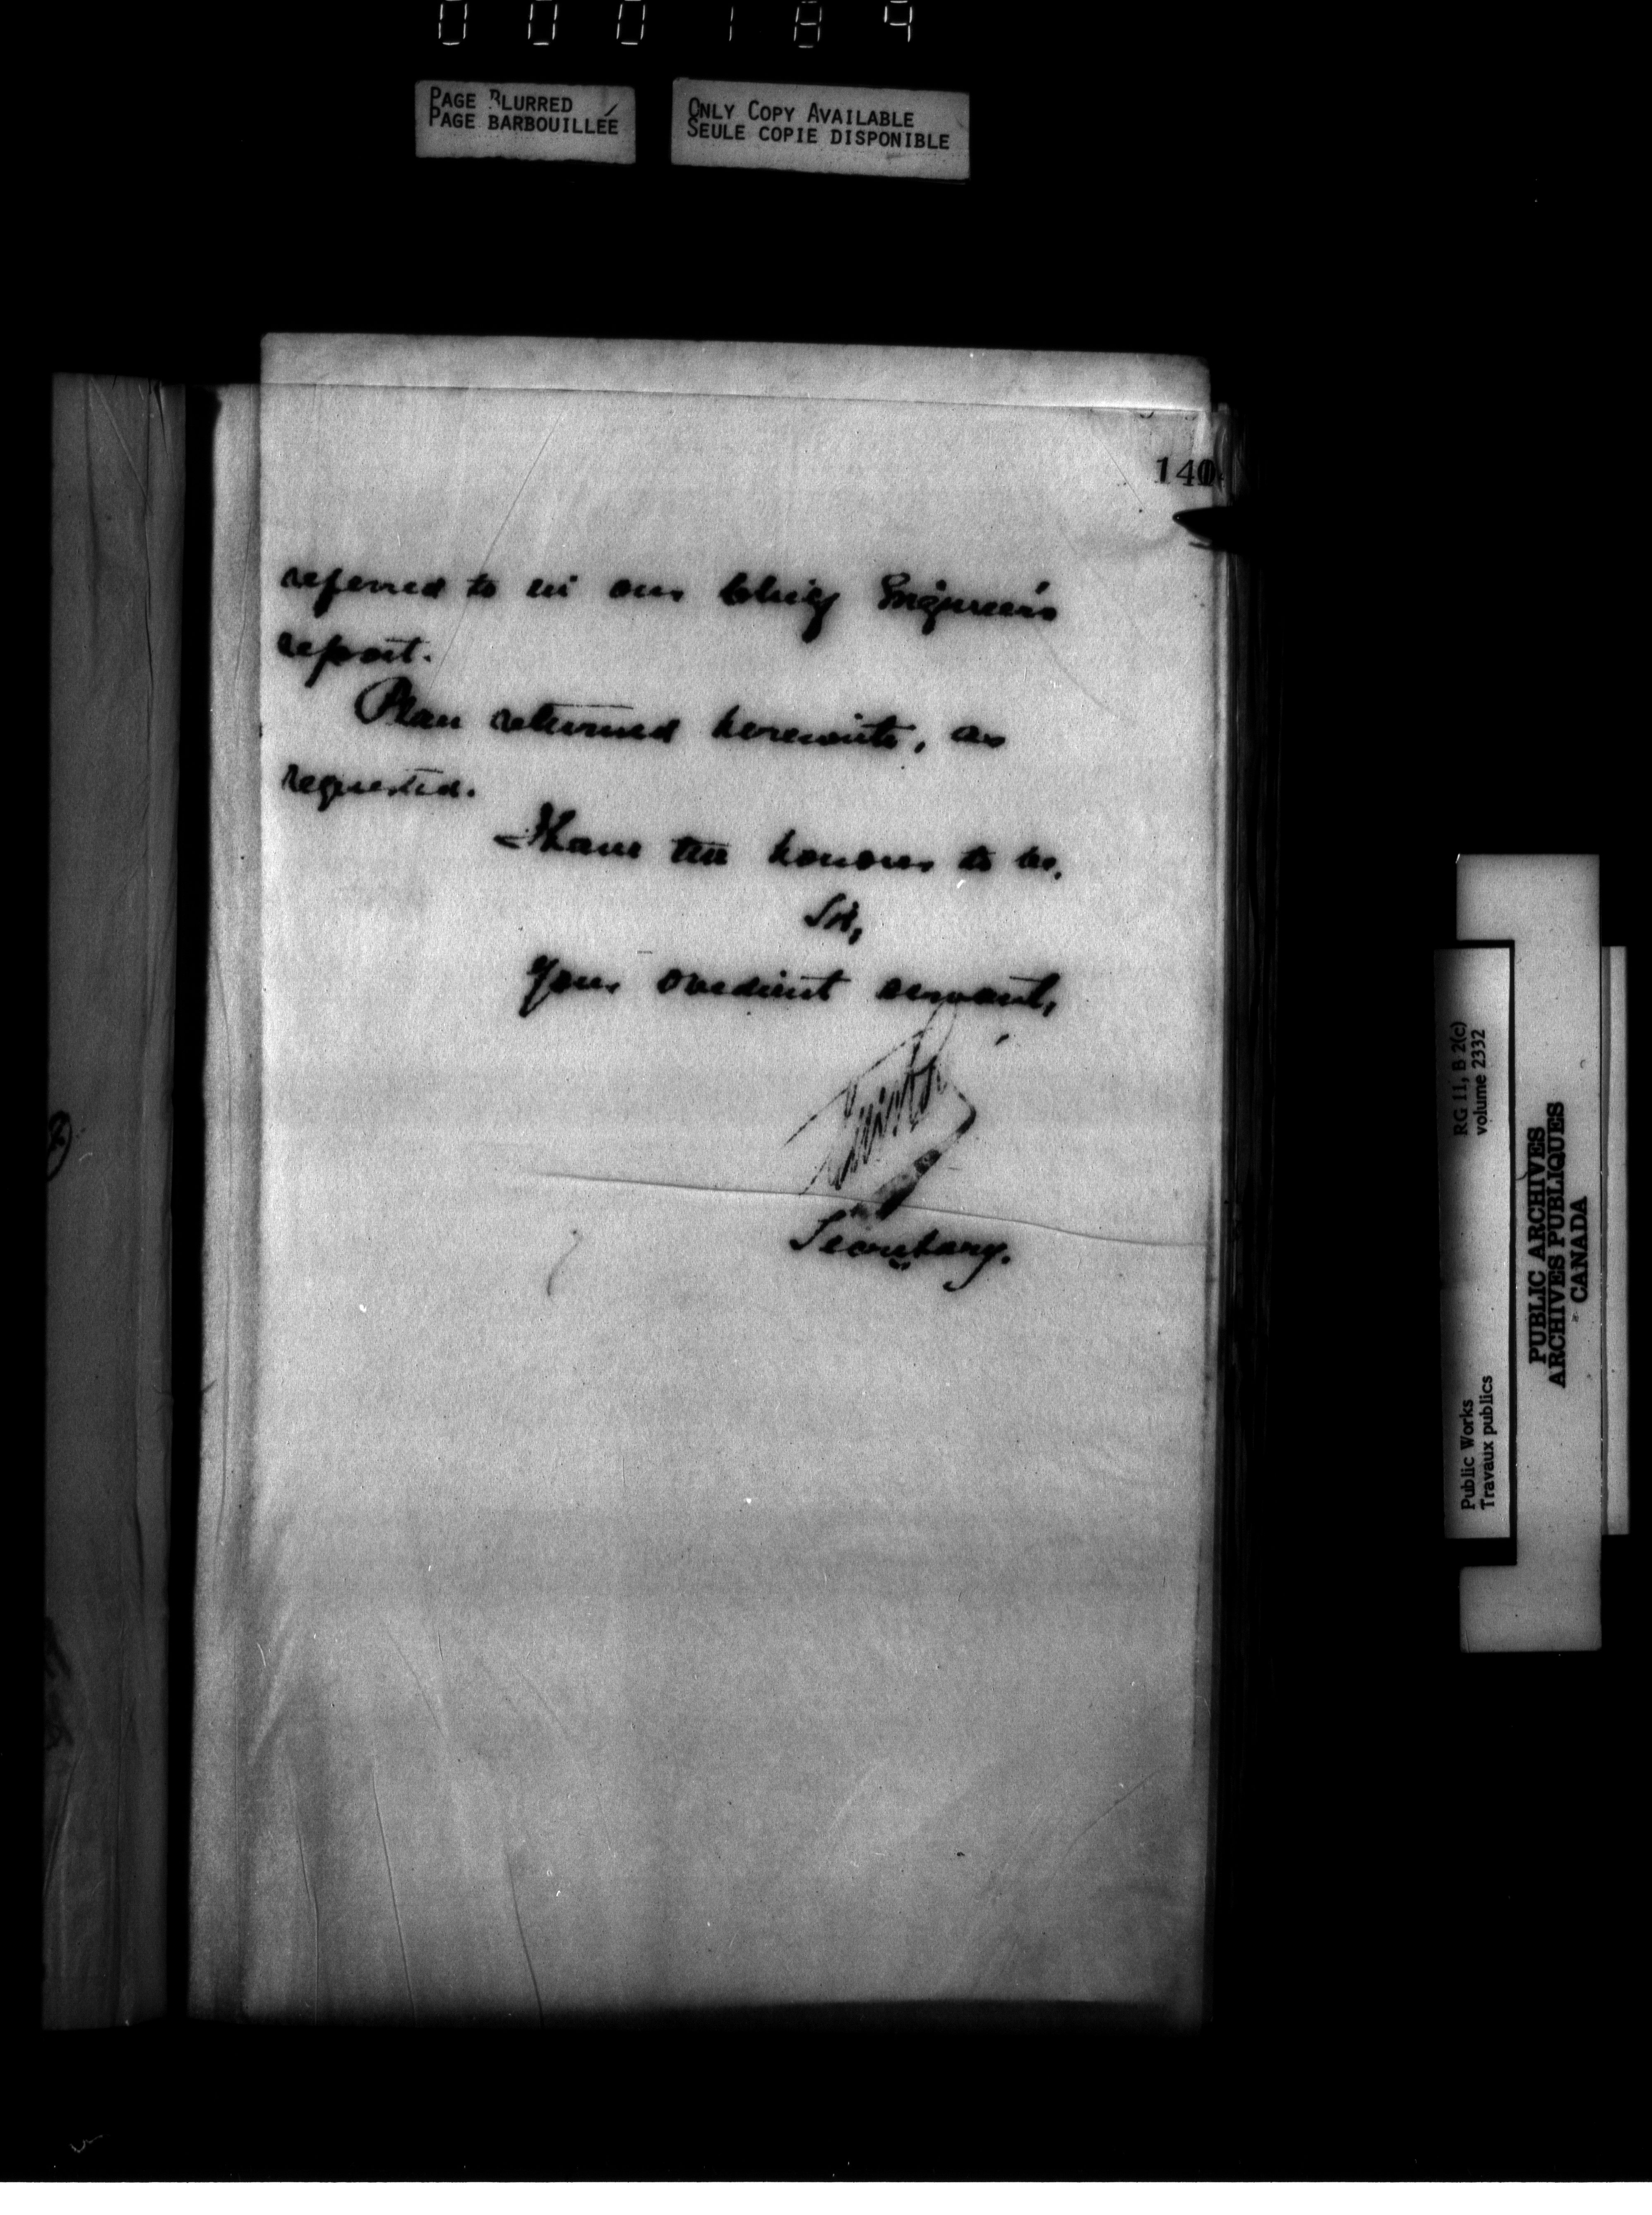 000189
PAGE BLURRED
PAGE BARBOUILLÉE
ONLY COPY AVAILABLE
SEULE COPIE DISPONIBLE
140
referred to in our Chief Engineer's
report.
Plan returned herewith, as
requested.
I have the honour to be,
Sir,
Your obedient servant,
Secretary.
RG 11, B 2(c)
volume 2332
Public Works
Travaux publics
PUBLIC ARCHIVES
ARCHIVES PUBLIQUES
CANADA